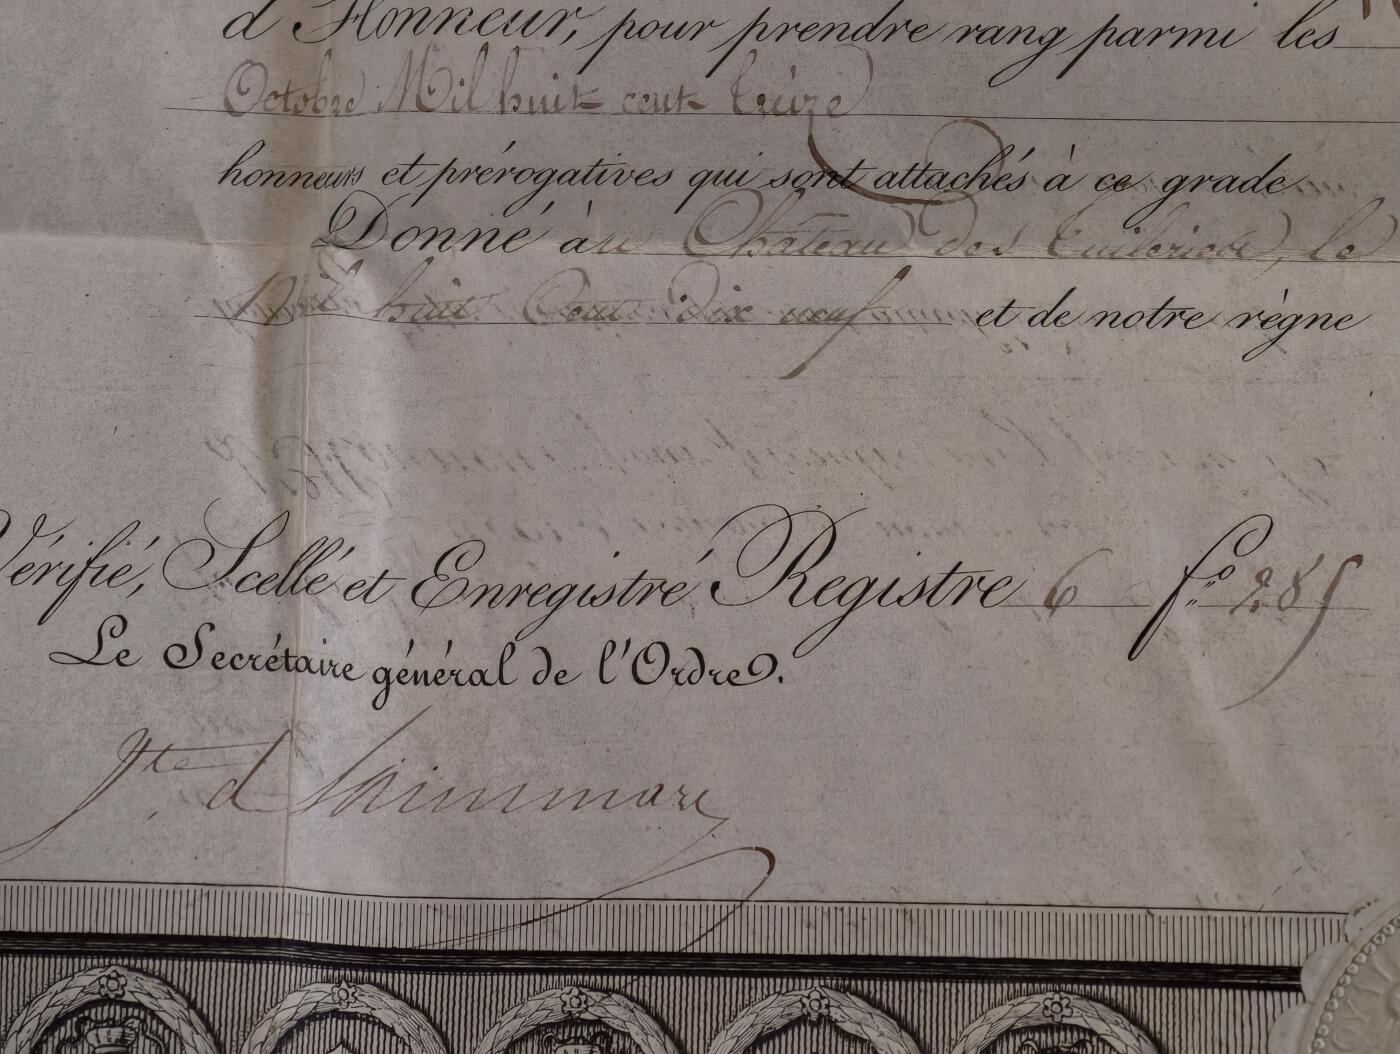 d'Honneur, pour prendre rang parmi les
Octobre Mil huit cent treize
honneurs et prérogatives qui sont attachés à ce grade
Donné au Château des Tuileries, le
Mil huit Cent dix neuf et de notre règne
Vérifié, Scellé et Enregistré Registre 6 fo. 285
Le Secrétaire général de l'Ordre.
Vte d